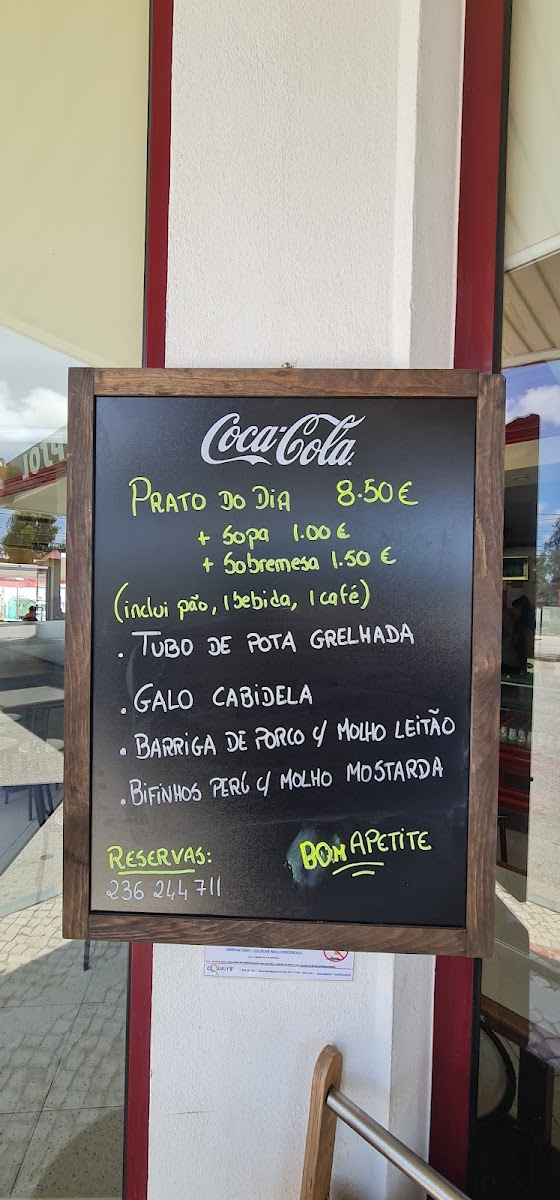 Coca-Cola
PRATO DO DIA 8.50€
+ Sopa 1.00€
+ Sobremesa 1.50€
(inclui pão, 1 bebida, 1 café)
. TUBO DE POTA GRELHADA
. GALO CABIDELA
. BARRIGA DE PORCO C/ MOLHO LEITÃO
. BIFINHOS PERÚ C/ MOLHO MOSTARDA
RESERVAS:
236 244 711
BOM APETITE
QUALI'S